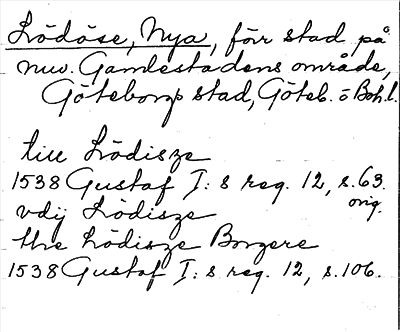 Lödöse, Nya, förr stad på
nuv. Gamlestadens område,
Göteborgs stad, Göteb. o Boh. l.
till Lödisze
1538 Gustaf I:s reg. 12, s. 63.
orig.
vdij Lödisze
the Lödisze Borgere
1538 Gustaf I:s reg. 12, s. 106.